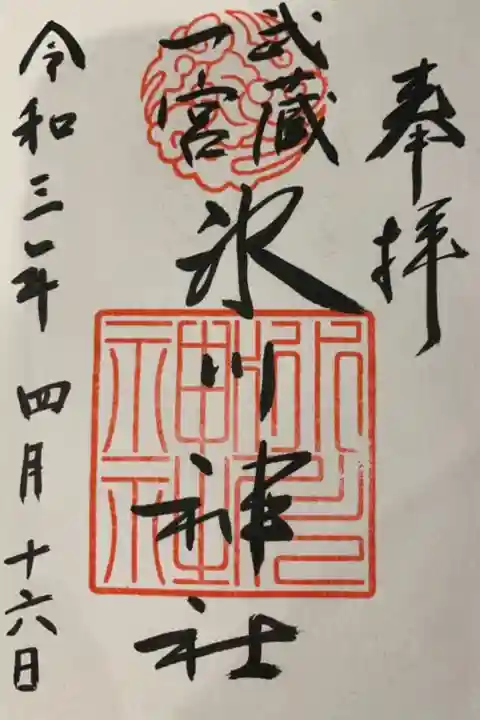 奉拝
武蔵
一宮
氷川神社
令和三年四月十六日